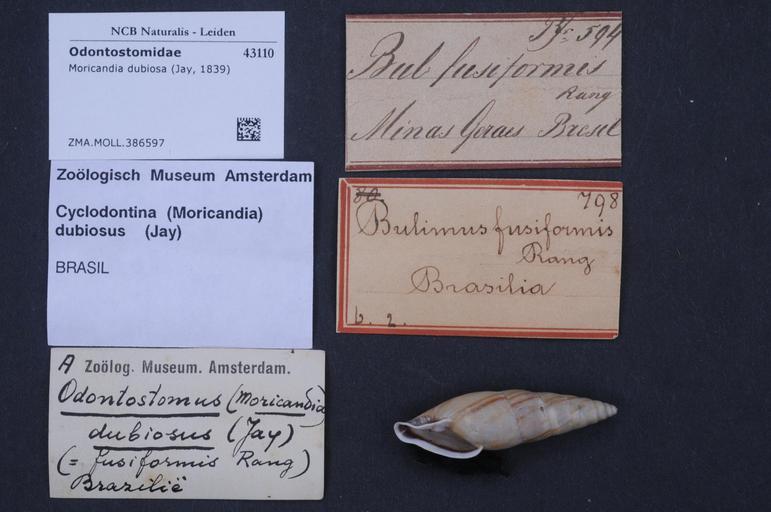 NCB Naturalis - Leiden
Odontostomidae 43110
Moricandia dubiosa (Jay, 1839)
ZMA.MOLL.386597
Zoölogisch Museum Amsterdam
Cyclodontina (Moricandia)
dubiosus (Jay)
BRASIL
A Zoölog. Museum. Amsterdam.
Odontostomus (Moricandia)
dubiosus (Jay)
(= fusiformis Rang)
Brazilië
594
Bul fusiformis
Rang
Minas Geraes Bresil
80. 798
Bulimus fusiformis
Rang
Brasilia
b. 2.